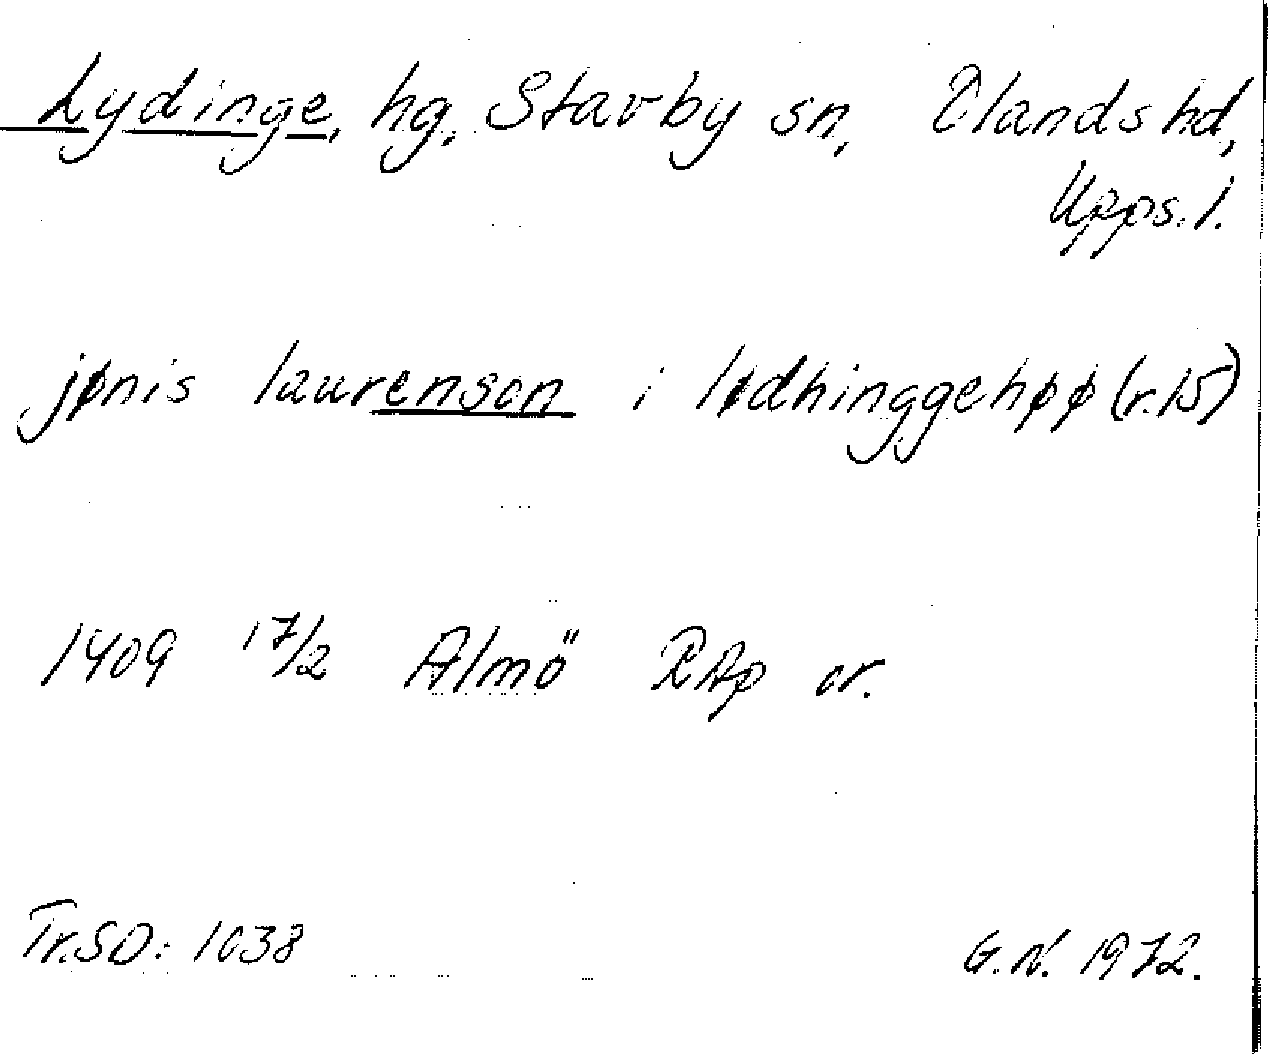 Lydinge, hg, Stavby sn, Olands hd,
Upps. l.
jønis laurenson i lødhinggehøø (r. 15)
1409 17/2 Almö RAp or.
Tr. SD: 1038 G. N. 1972.